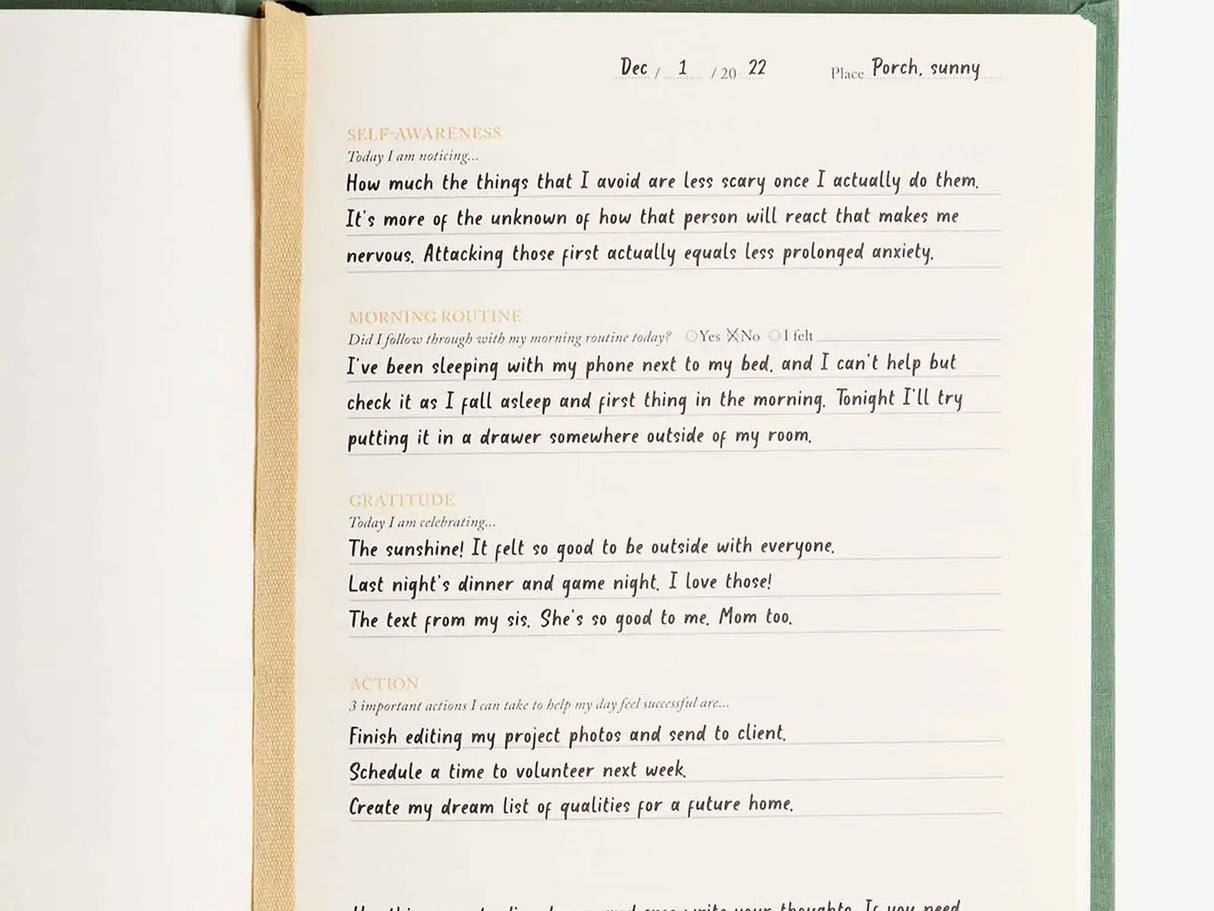 Dec / 1 / 20 22 Place Porch, sunny
SELF-AWARENESS
Today I am noticing...
How much the things that I avoid are less scary once I actually do them.
It's more of the unknown of how that person will react that makes me
nervous. Attacking those first actually equals less prolonged anxiety.
MORNING ROUTINE
Did I follow through with my morning routine today? Yes No I felt
I've been sleeping with my phone next to my bed, and I can't help but
check it as I fall asleep and first thing in the morning. Tonight I'll try
putting it in a drawer somewhere outside of my room.
GRATITUDE
Today I am celebrating...
The sunshine! It felt so good to be outside with everyone.
Last night's dinner and game night. I love those!
The text from my sis. She's so good to me. Mom too.
ACTION
3 important actions I can take to help my day feel successful are...
Finish editing my project photos and send to client.
Schedule a time to volunteer next week.
Create my dream list of qualities for a future home.
write your thoughts. If you need